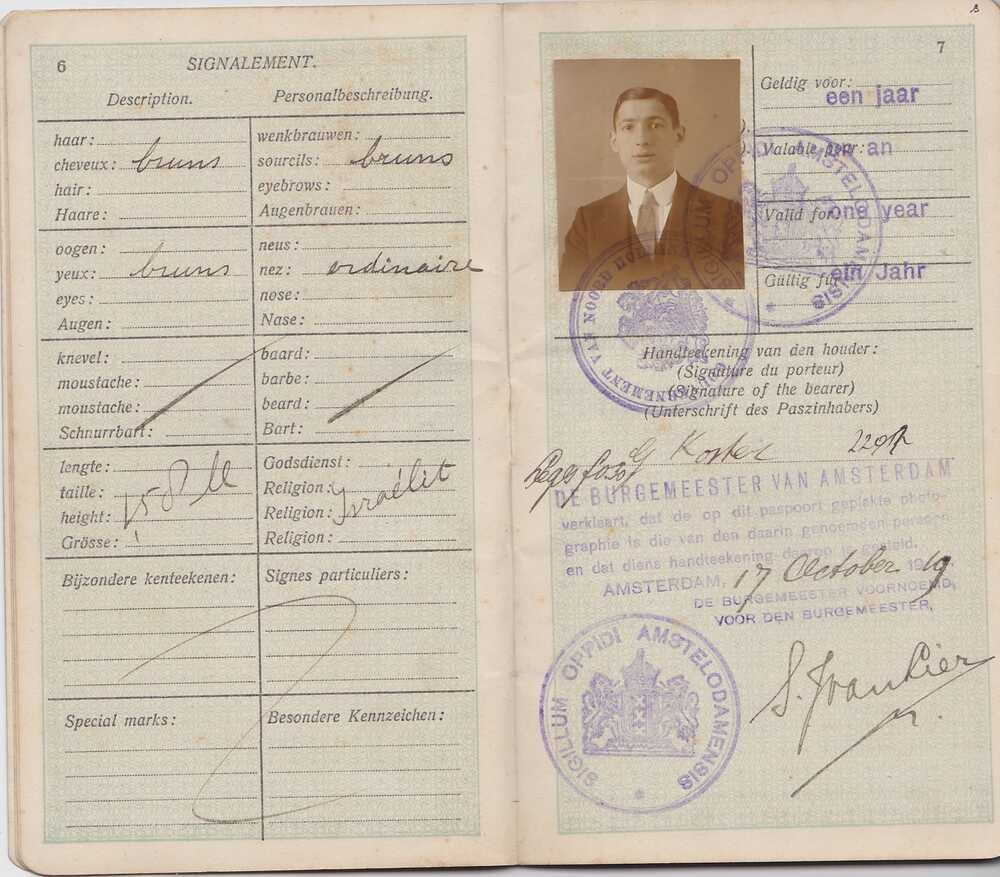 6
SIGNALEMENT.
Description. Personalbeschreibung.
haar:
cheveux: bruns
hair:
Haare:
wenkbrauwen:
sourcils: bruns
eyebrows:
Augenbrauen:
oogen:
yeux: bruns
eyes:
Augen:
neus:
nez: ordinaire
nose:
Nase:
knevel:
moustache:
moustache:
Schnurrbart:
baard:
barbe:
beard:
Bart:
lengte:
taille: 1,58 M
height:
Grösse:
Godsdienst:
Religion: Israélit
Religion:
Religion:
Bijzondere kenteekenen:
Signes particuliers:
Special marks:
Besondere Kennzeichen:
7
Geldig voor:
een jaar
Valable pour:
un an
Valid for one year
Gültig für ein Jahr
SIGILLUM OPPIDI AMSTELODAMENSIS
VAN NOORD HOLLAND
Handteekening van den houder:
(Signature du porteur)
(Signature of the bearer)
(Unterschrift des Paszinhabers)
G Koster
DE BURGEMEESTER VAN AMSTERDAM
verklaart, dat de op dit paspoort geplakte photo-
graphie is die van den daarin genoemden persoon
en dat diens handteekening daarop is gesteld.
AMSTERDAM, 17 October 1919.
DE BURGEMEESTER VOORNOEMD,
VOOR DEN BURGEMEESTER,
SIGILLUM OPPIDI AMSTELODAMENSIS